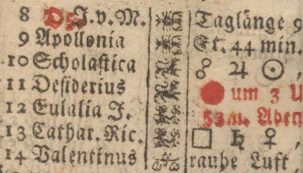 8 J. v. M. Taglänge 9
9 Apollonia St. 44 min.
10 Scholastica ☍ ♃ ☉
11 Desiderius um 3 U
12 Eulalia J. 53m. Aben
13 Cathar. Ric. □ ♄ ♀,
14 Valentinus rauhe Luft,